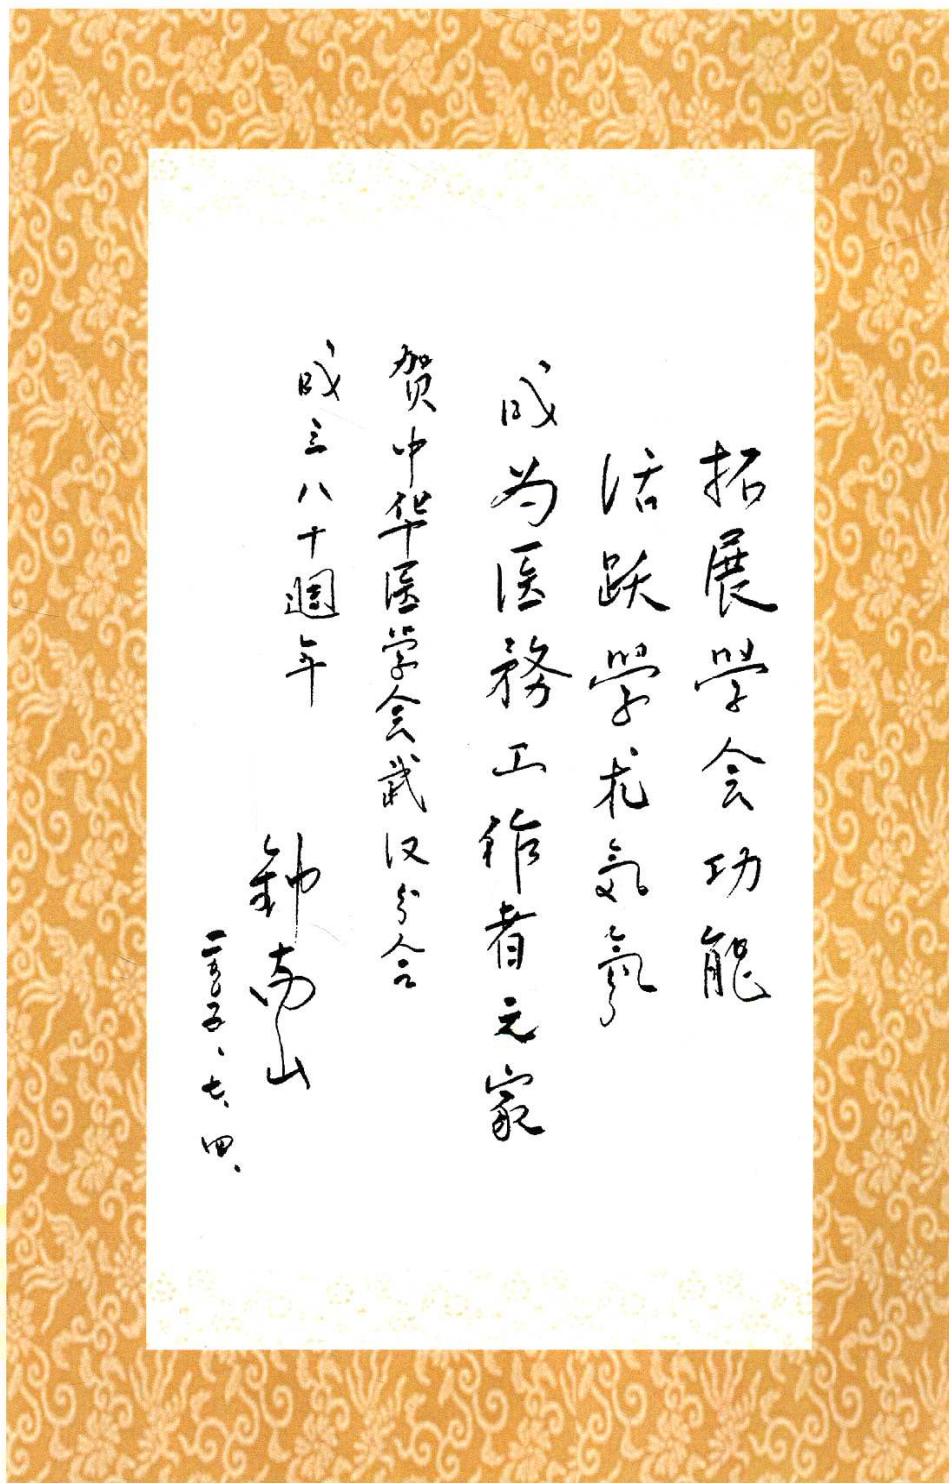 拓展学会功能
活跃学术气氛
成为医務工作者之家
贺中华医学会武汉分会
成立八十週年
钟南山
七、四、